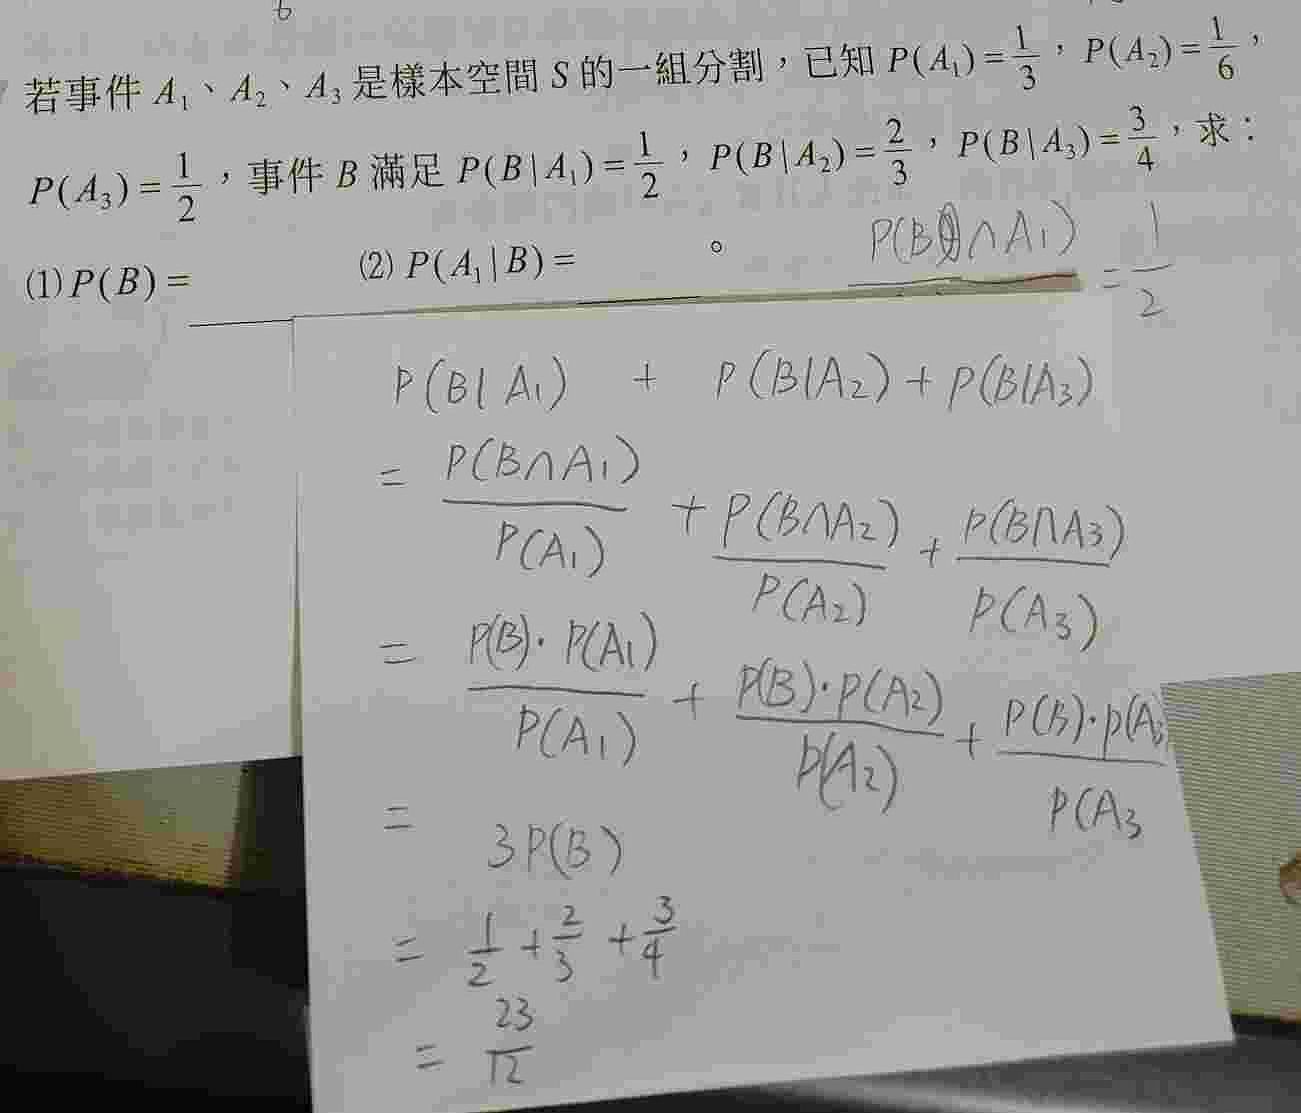 6
若事件 A₁、A₂、A₃ 是樣本空間 S 的一組分割，已知 P(A₁)=1/3，P(A₂)=1/6，
P(A₃)=1/2，事件 B 滿足 P(B|A₁)=1/2，P(B|A₂)=2/3，P(B|A₃)=3/4，求：
(1) P(B)= (2) P(A₁|B)= 。
P(B∩A₁) = 1/2
P(B|A₁) + P(B|A₂) + P(B|A₃)
= P(B∩A₁)/P(A₁) + P(B∩A₂)/P(A₂) + P(B∩A₃)/P(A₃)
= P(B)·P(A₁)/P(A₁) + P(B)·P(A₂)/P(A₂) + P(B)·P(A₃/P(A₃
= 3P(B)
= 1/2 + 2/3 + 3/4
= 23/12